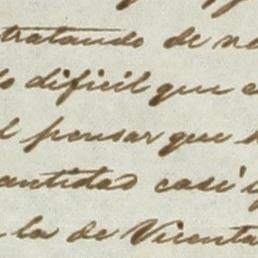 tratando de
dificil que
pensar que
cantidad casi
la de Vicenta